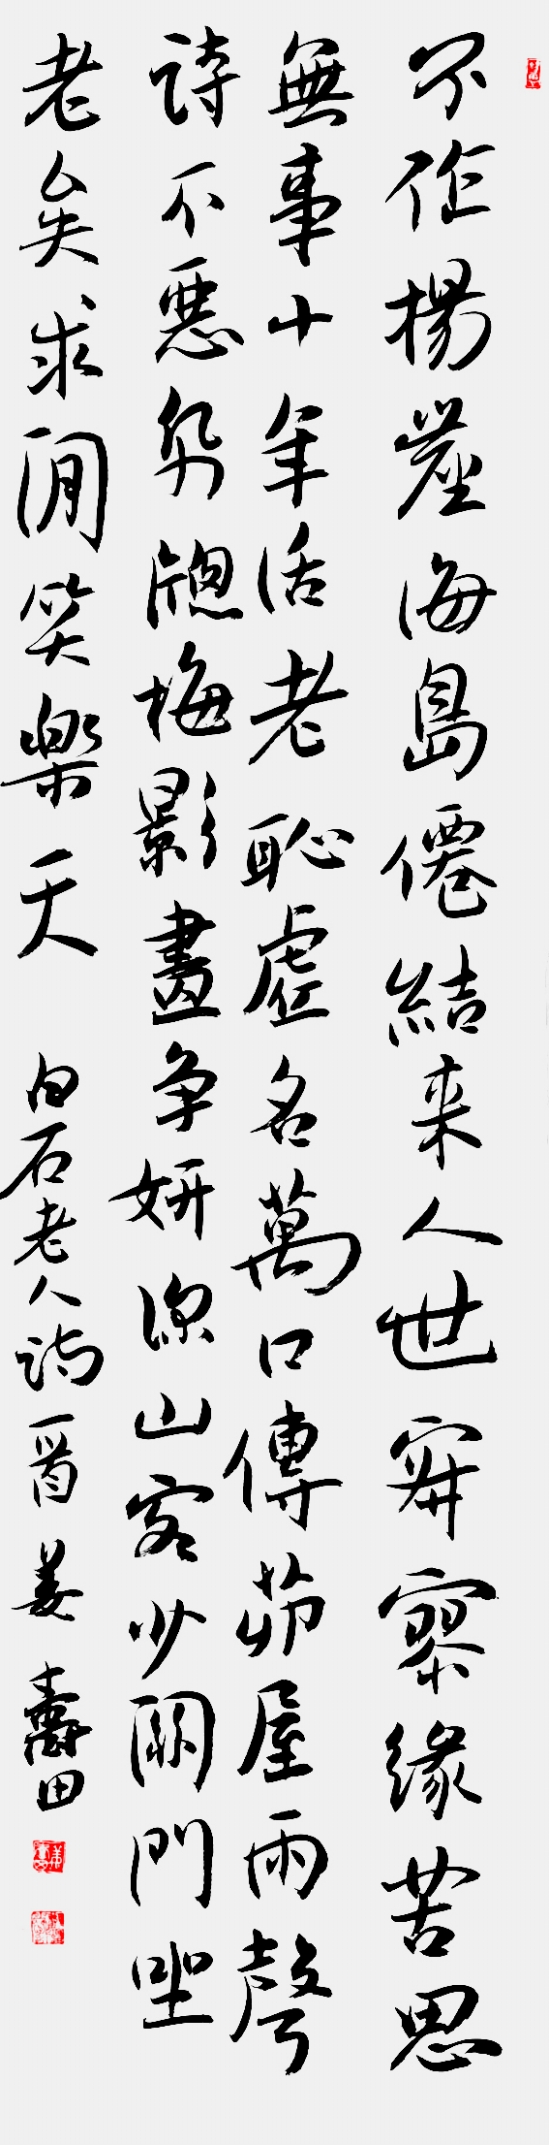 不作揚塵海島僊結来人世寂寥緣苦思
無事十年活老恥虛名萬口傳茆屋雨聲
詩不惡帋牕梅影畫争妍深山客少關門坐
老矣求閒笑樂天 白石老人詩 姜壽田